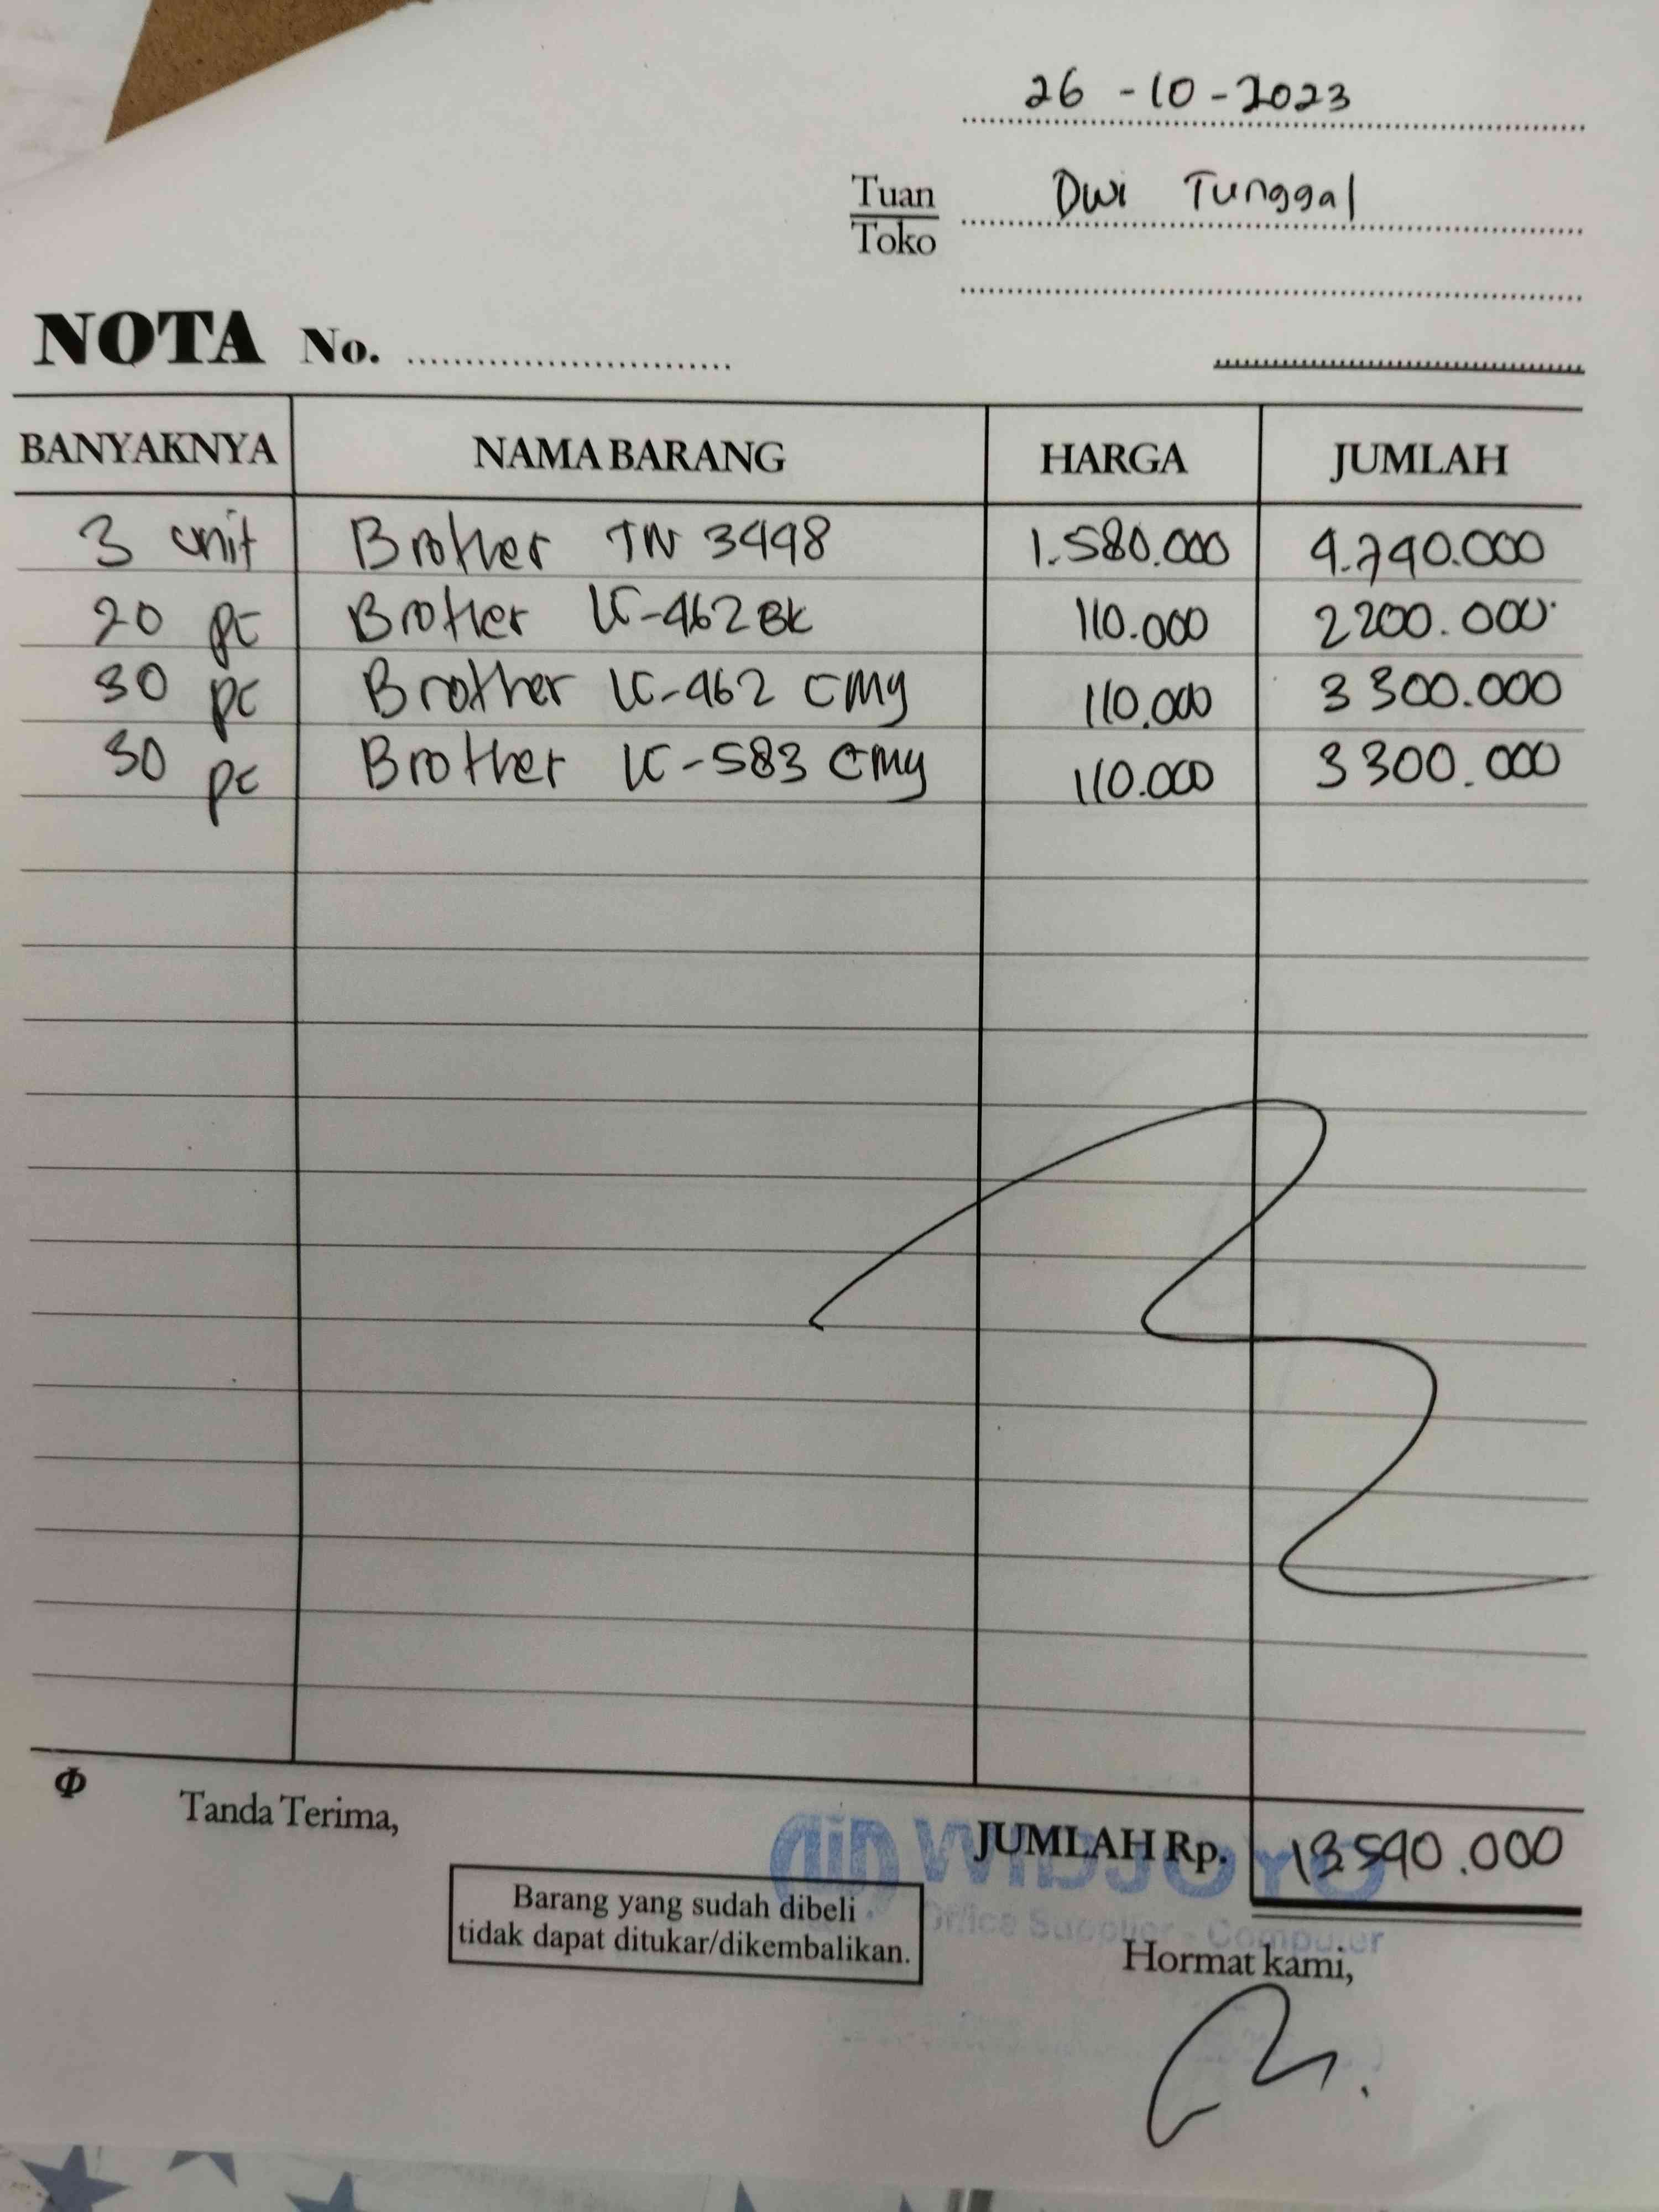 26 - 10 - 2023
Tuan
Toko
Dwi Tunggal
NOTA No.
BANYAKNYA NAMA BARANG HARGA JUMLAH
3 unit Brother TN 3448 1.580.000 4.740.000
20 pc Brother LC-462BK 110.000 2200.000
30 pc Brother LC-462 CMY 110.000 3 300.000
30 pc Brother LC-583 CMY 110.000 3 300.000
Tanda Terima,
JUMLAH Rp. 13.540.000
WIDJOYO
Office Supplier - Computer
Barang yang sudah dibeli
tidak dapat ditukar/dikembalikan.
Hormat kami,